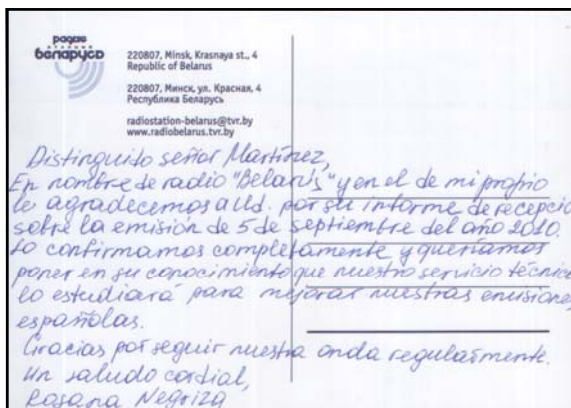 радыё
беларусь
220807, Minsk, Krasnaya st., 4
Republic of Belarus
220807, Минск, ул. Красная, 4
Республика Беларусь
radiostation-belarus@tvr.by
www.radiobelarus.tvr.by
Distinguido señor Martínez,
En nombre de radio "Belarús" y en el de mi propio
le agradecemos a Ud. por su informe de recepció
sobre la emisión de 5 de septiembre del año 2010.
Lo confirmamos completamente y queríamos
poner en su conocimiento que nuestro servicio técnico
lo estudiará para mejorar nuestras emisiones
españolas.
Gracias por seguir nuestra onda regularmente.
Un saludo cordial,
Rosana Negriza